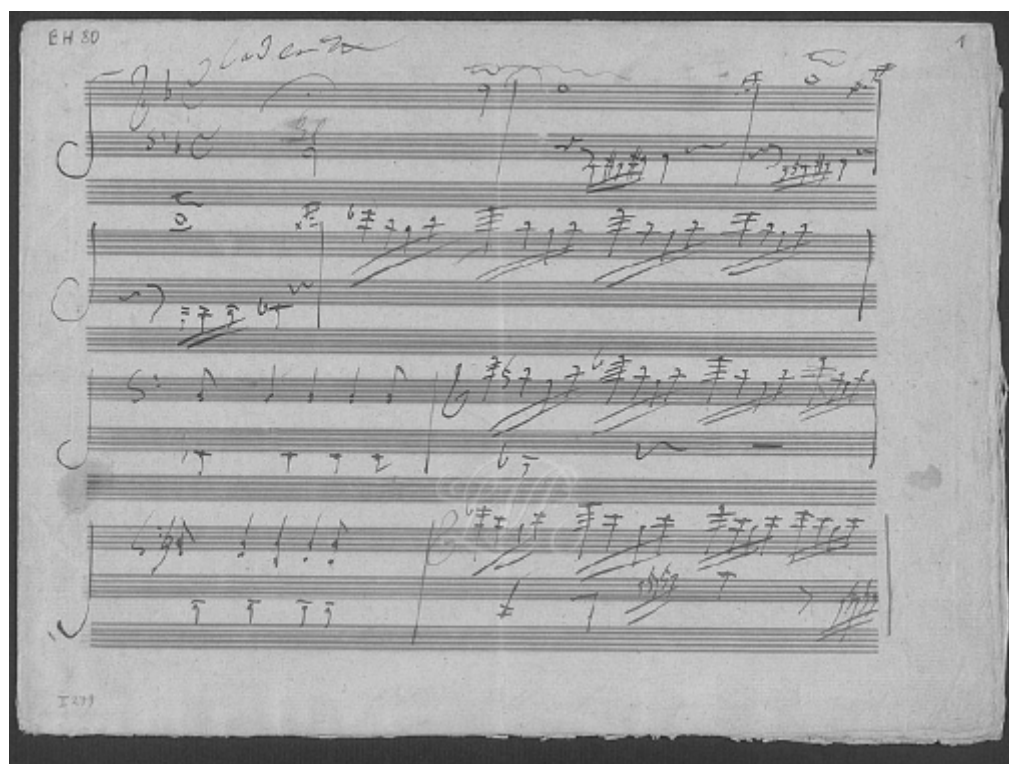 EH 80
Cadenza
1
I 279